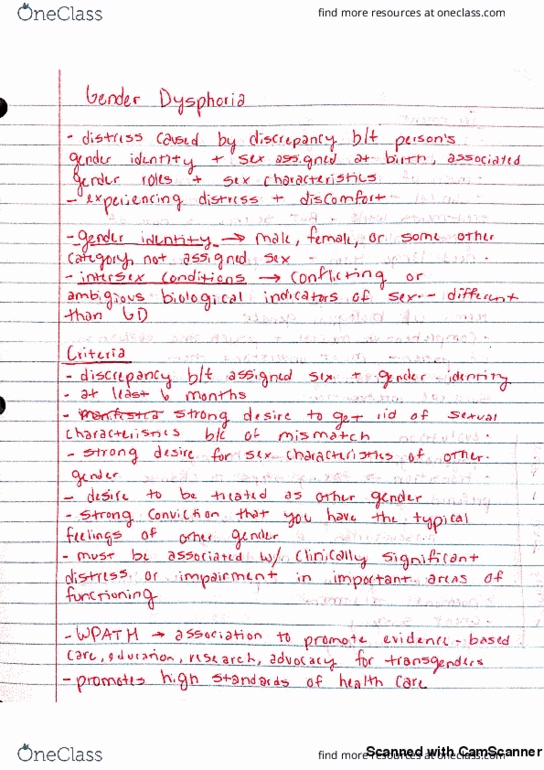 OneClass
find more resources at oneclass.com
Gender Dysphoria
- distress caused by discrepancy b/t person's
gender identity + sex assigned at birth, associated
gender roles + sex characteristics
- experiencing distress + discomfort
- gender identity → male, female, or some other
category, not assigned sex -
- intersex conditions → conflicting or
ambigious biological indicators of sex - different
than GD
Criteria
- discrepancy b/t assigned sex + gender identity
- at least 6 months
- strong desire to get rid of sexual
characteristics b/c of mismatch
- strong desire for sex characteristics of other
gender
- desire to be treated as other gender
- strong conviction that you have the typical
feelings of other gender
- must be associated w/ clinically significant
distress or impairment in important areas of
functioning
- WPATH → association to promote evidence-based
care, education, research, advocacy for transgenders
- promotes high standards of health care
OneClass
find more resources at oneclass.com
Scanned with CamScanner